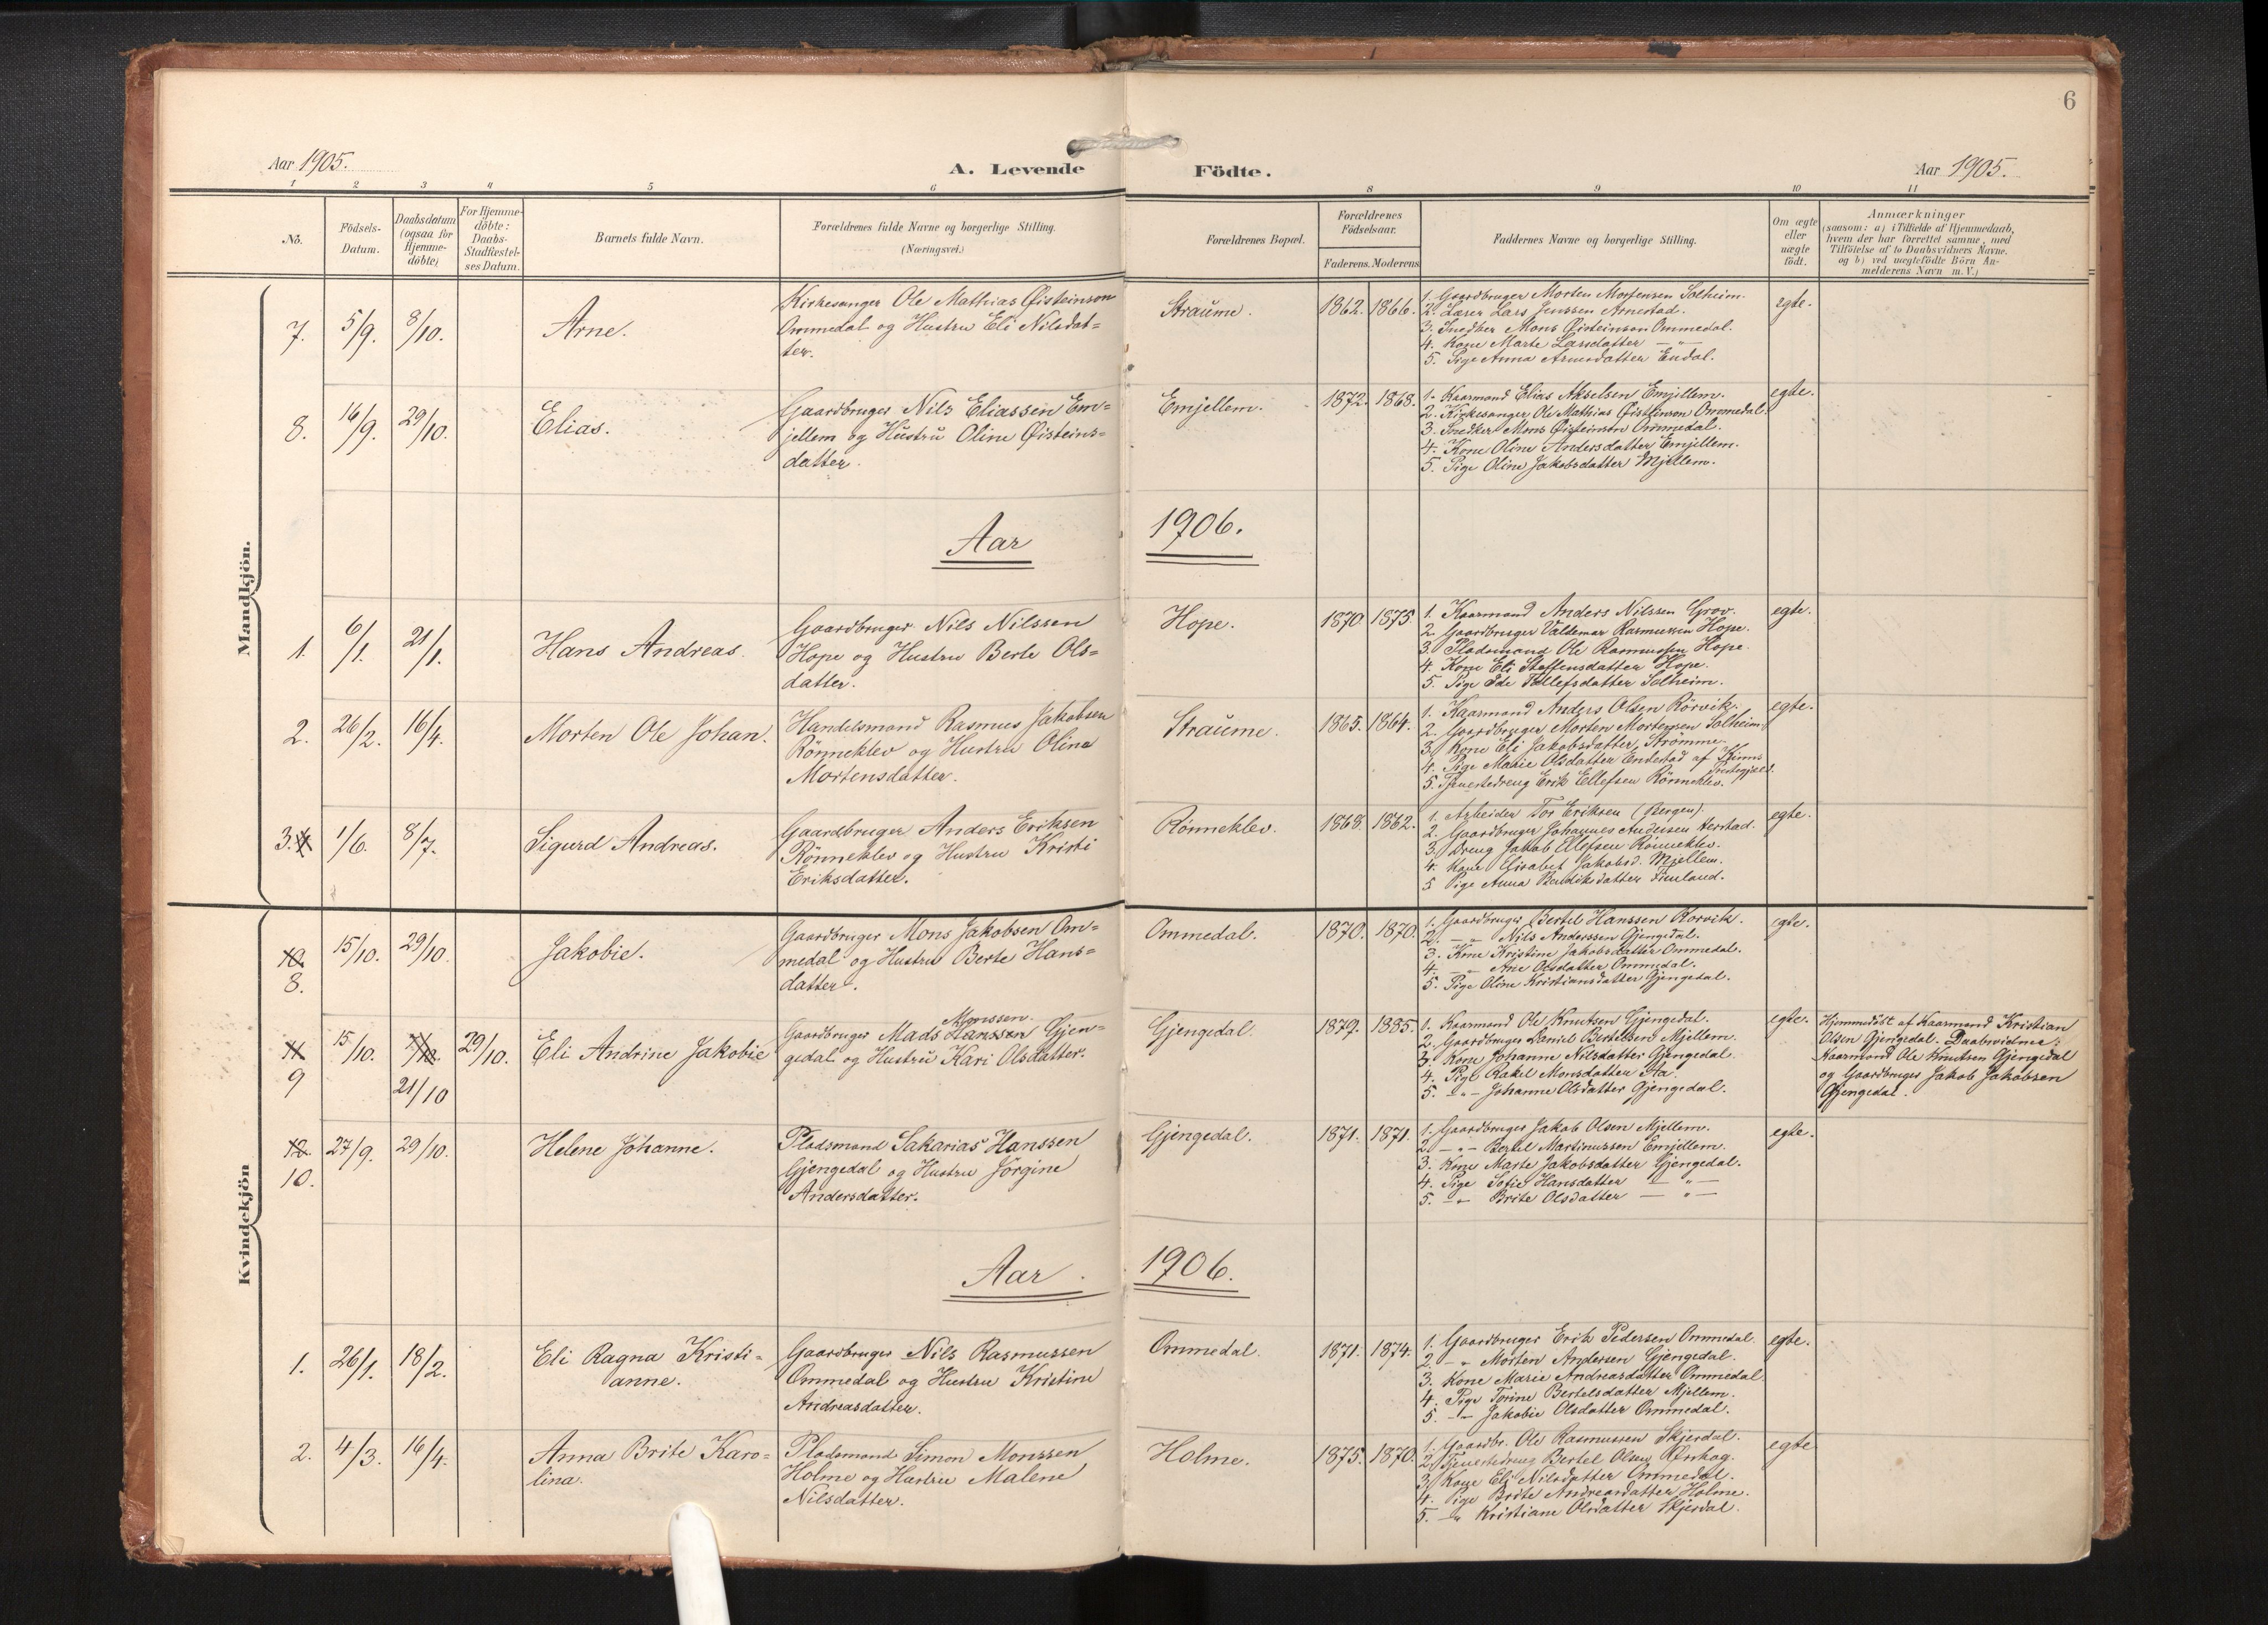 6
Aar 1905.
A. Levende Födte.
Aar 1905.
1 2 3 4 5 6 8 9 10 11
No.
Födsels-
Datum.
Daabsdatum
(ogsaa for
Hjemme-
döbte)
For Hjemme-
döbte:
Daabs-
Stadfæstel-
ses Datum.
Barnets fulde Navn.
Forældrenes fulde Navne og borgerlige Stilling.
(Næringsvei.)
Forældrenes Bopæl.
Forældrenes
Födselsaar.
Faderens. Moderens
Faddernes Navne og borgerlige Stilling.
Om ægte
eller
uægte
födt.
Anmærkninger
(saasom: a) i Tilfælde af Hjemmedaab,
hvem der har forrettet samme, med
Tilföielse af to Daabsvidners Navne.
og b) ved uægtefödte Börn An-
melderens Navn m. V.)
Mandkjön.
7. 5/9. 8/10. Arne.
Kirkesanger Ole Mathias Øisteinson
Ommedal og Hustru Eli Nilsdat=
ter.
Straume. 1862. 1866.
1. Gaardbruger Morten Mortensen Solheim.
2. Lærer Lars Jenssen Arnestad.
3. Snedker Mons Øisteinson Ommedal.
4. Kone Marte Larsdatter — " —
5. Pige Anna Arnesdatter Endal.
egte.
8. 16/9. 29/10. Elias.
Gaardbruger Nils Eliassen Em=
jellem og Hustru Oline Øisteins=
datter.
Emjellem. 1872. 1868.
1. Kaarmand Elias Akselsen Emjellem.
2. Kirkesanger Ole Mathias Øisteinson Ommedal.
3. Snedker Mons Øisteinson Ommedal.
4. Kone Oline Andersdatter Emjellem.
5. Pige Oline Jakobsdatter Mjellem.
egte.
Aar 1906.
1. 6/1. 21/1. Hans Andreas.
Gaardbruger Nils Nilssen
Hope og Hustru Berte Ols=
datter.
Hope. 1870 1875.
1. Kaarmand Anders Nilssen Grov.
2. Gaardbruger Valdemar Rasmussen Hope.
3. Pladsmand Ole Rasmussen Hope.
4. Kone Eli Steffensdatter Hope.
5. Pige Ide Tollefsdatter Solheim.
egte.
2. 26/2. 16/4. Morten Ole Johan.
Handelsmand Rasmus Jakobsen
Rönneklev og Hustru Olina
Mortensdatter.
Straume. 1865. 1864.
1. Kaarmand Anders Olsen Rörvik.
2. Gaardbruger Morten Mortensen Solheim.
3. Kone Eli Jakobsdatter Strömme.
4. Pige Marie Olsdatter Endestad af Kinns
Prestegjæld.
5. Tjenestedreng Erik Ellefsen Rönneklev.
egte.
3. 4 1/6. 8/7. Sigurd Andreas.
Gaardbruger Anders Eriksen
Rönneklev og Hustru Kristi
Eriksdatter.
Rönneklev. 1868. 1862.
1. Arbeider Tor Eriksen (Bergen).
2. Gaardbruger Johannes Andersen Herstad.
3. Dreng Jakob Ellefsen Rönneklev.
4. Kone Elisabet Jakobsd. Mjellem.
5 Pige Anna Bendiksdatter
egte.
Kvindekjön
10. 15/10. 29/10. Jakobie.
8.
Gaardbruger Mons Jakobsen Om=
medal og Hustru Berte Hans=
datter.
Ommedal. 1870. 1870.
1. Gaardbruger Bertel Hanssen Rorvik.
2. — " — Nils Anderssen Gjengedal.
3. Kone Kristine Jakobsdatter Ommedal.
4. — " — Ane Olsdatter Ommedal.
5. Pige Oline Kristiansdatter Gjengedal.
egte.
11 15/10. 29/10. Eli Andrine Jakobie
9 21/10
Monssen.
Gaardbruger Mads Hanssen Gjen=
gedal og Hustru Kari Olsdatter.
Gjengedal. 1879. 1885.
1. Kaarmand Ole Knutsen Gjengedal.
2. Gaardbruger Daniel Bertelsen Mjellem.
3. Kone Johanne Nilsdatter Gjengedal.
4. Pige Rakel Monsdatter Aa.
5. — " — Johanne Olsdatter Gjengedal.
egte.
Hjemmedöbt af Kaarmand Kristian
Olsen Gjengedal. Daabsvidner:
Kaarmand Ole Knutsen Gjengedal
og Gaardbruger Jakob Jakobsen
Gjengedal.
12. 27/9. 29/10. Helene Johanne.
10.
Pladsmand Sakarias Hanssen
Gjengedal og Hustru Jörgine
Andersdatter.
Gjengedal. 1871. 1871.
1. Gaardbruger Jakob Olsen Mjellem.
2. — " — Bertel Martinussen Emjellem.
3. Kone Marte Jakobsdatter Gjengedal.
4. Pige Sofie Hansdatter — " —
5. — " — Brite Olsdatter — " —
egte.
Aar 1906.
1. 26/1. 18/2. Eli Ragna Kristi=
anne.
Gaardbruger Nils Rasmussen
Ommedal og Hustru Kristine
Andreasdatter.
Ommedal. 1871. 1874.
1. Gaardbruger Erik Pedersen Ommedal.
2. — " Morten Andersen Gjengedal.
3. Kone Marie Andreasdatter Ommedal.
4. Pige Torine Bertelsdatter Mjellem.
5. — " — Jakobie Olsdatter Ommedal.
egte.
2. 4/3. 16/4. Anna Brite Karo=
lina.
Pladsmand Simon Monssen
Holme og Hustru Malene
Nilsdatter.
Holme. 1875. 1870.
1. Gaardbr. Ole Rasmussen Skjerdal.
2. Tjenestedreng Bertel Olsen
3. Kone Eli Nilsdatter Ommedal.
4. Pige Brite Andreasdatter Holme.
5. — " Kristiane Olsdatter Skjerdal.
egte